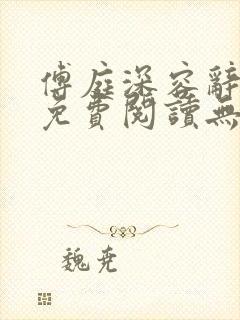 傅庭深容辭
免費閱讀無
魏尭